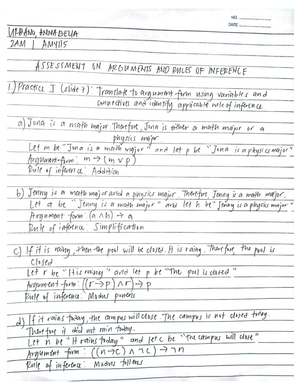 NO.
DATE
URBANO, ANNA BELLA
2AM | AMY115
ASSESSMENT ON ARGUMENTS AND RULES OF INFERENCE
1.) Practice I (slide 7): Translate to argument form using variables and
connectives and identify applicable rule of inference
a) Juna is a math major Therefore, Juna is either a math major or a
physics major
Let m be "Juna is a math major" and let p be "Juna is a physics major"
Argument form: m → (m ∨ p)
Rule of inference: Addition
b) Jenny is a math major and a physics major Therefore Jenny is a math major.
Let a be "Jenny is a math major" and let h be "Jenny is a physics major"
Argument form (a ∧ h) → a
Rule of inference Simplification
c) If it is rainy, then the pool will be closed. It is rainy. Therefore, the pool is
closed
Let r be "It is rainy" and let p be "The pool is closed"
Argument form: ((r → p) ∧ r) → p
Rule of inference: Modus ponens
d) If it rains today, the campus will close. The campus is not closed today.
Therefore it did not rain today.
Let n be "It rains today" and let c be "The campus will close"
Argument form : ((n → c) ∧ ¬c) → ¬n
Rule of inference: Modus tollens